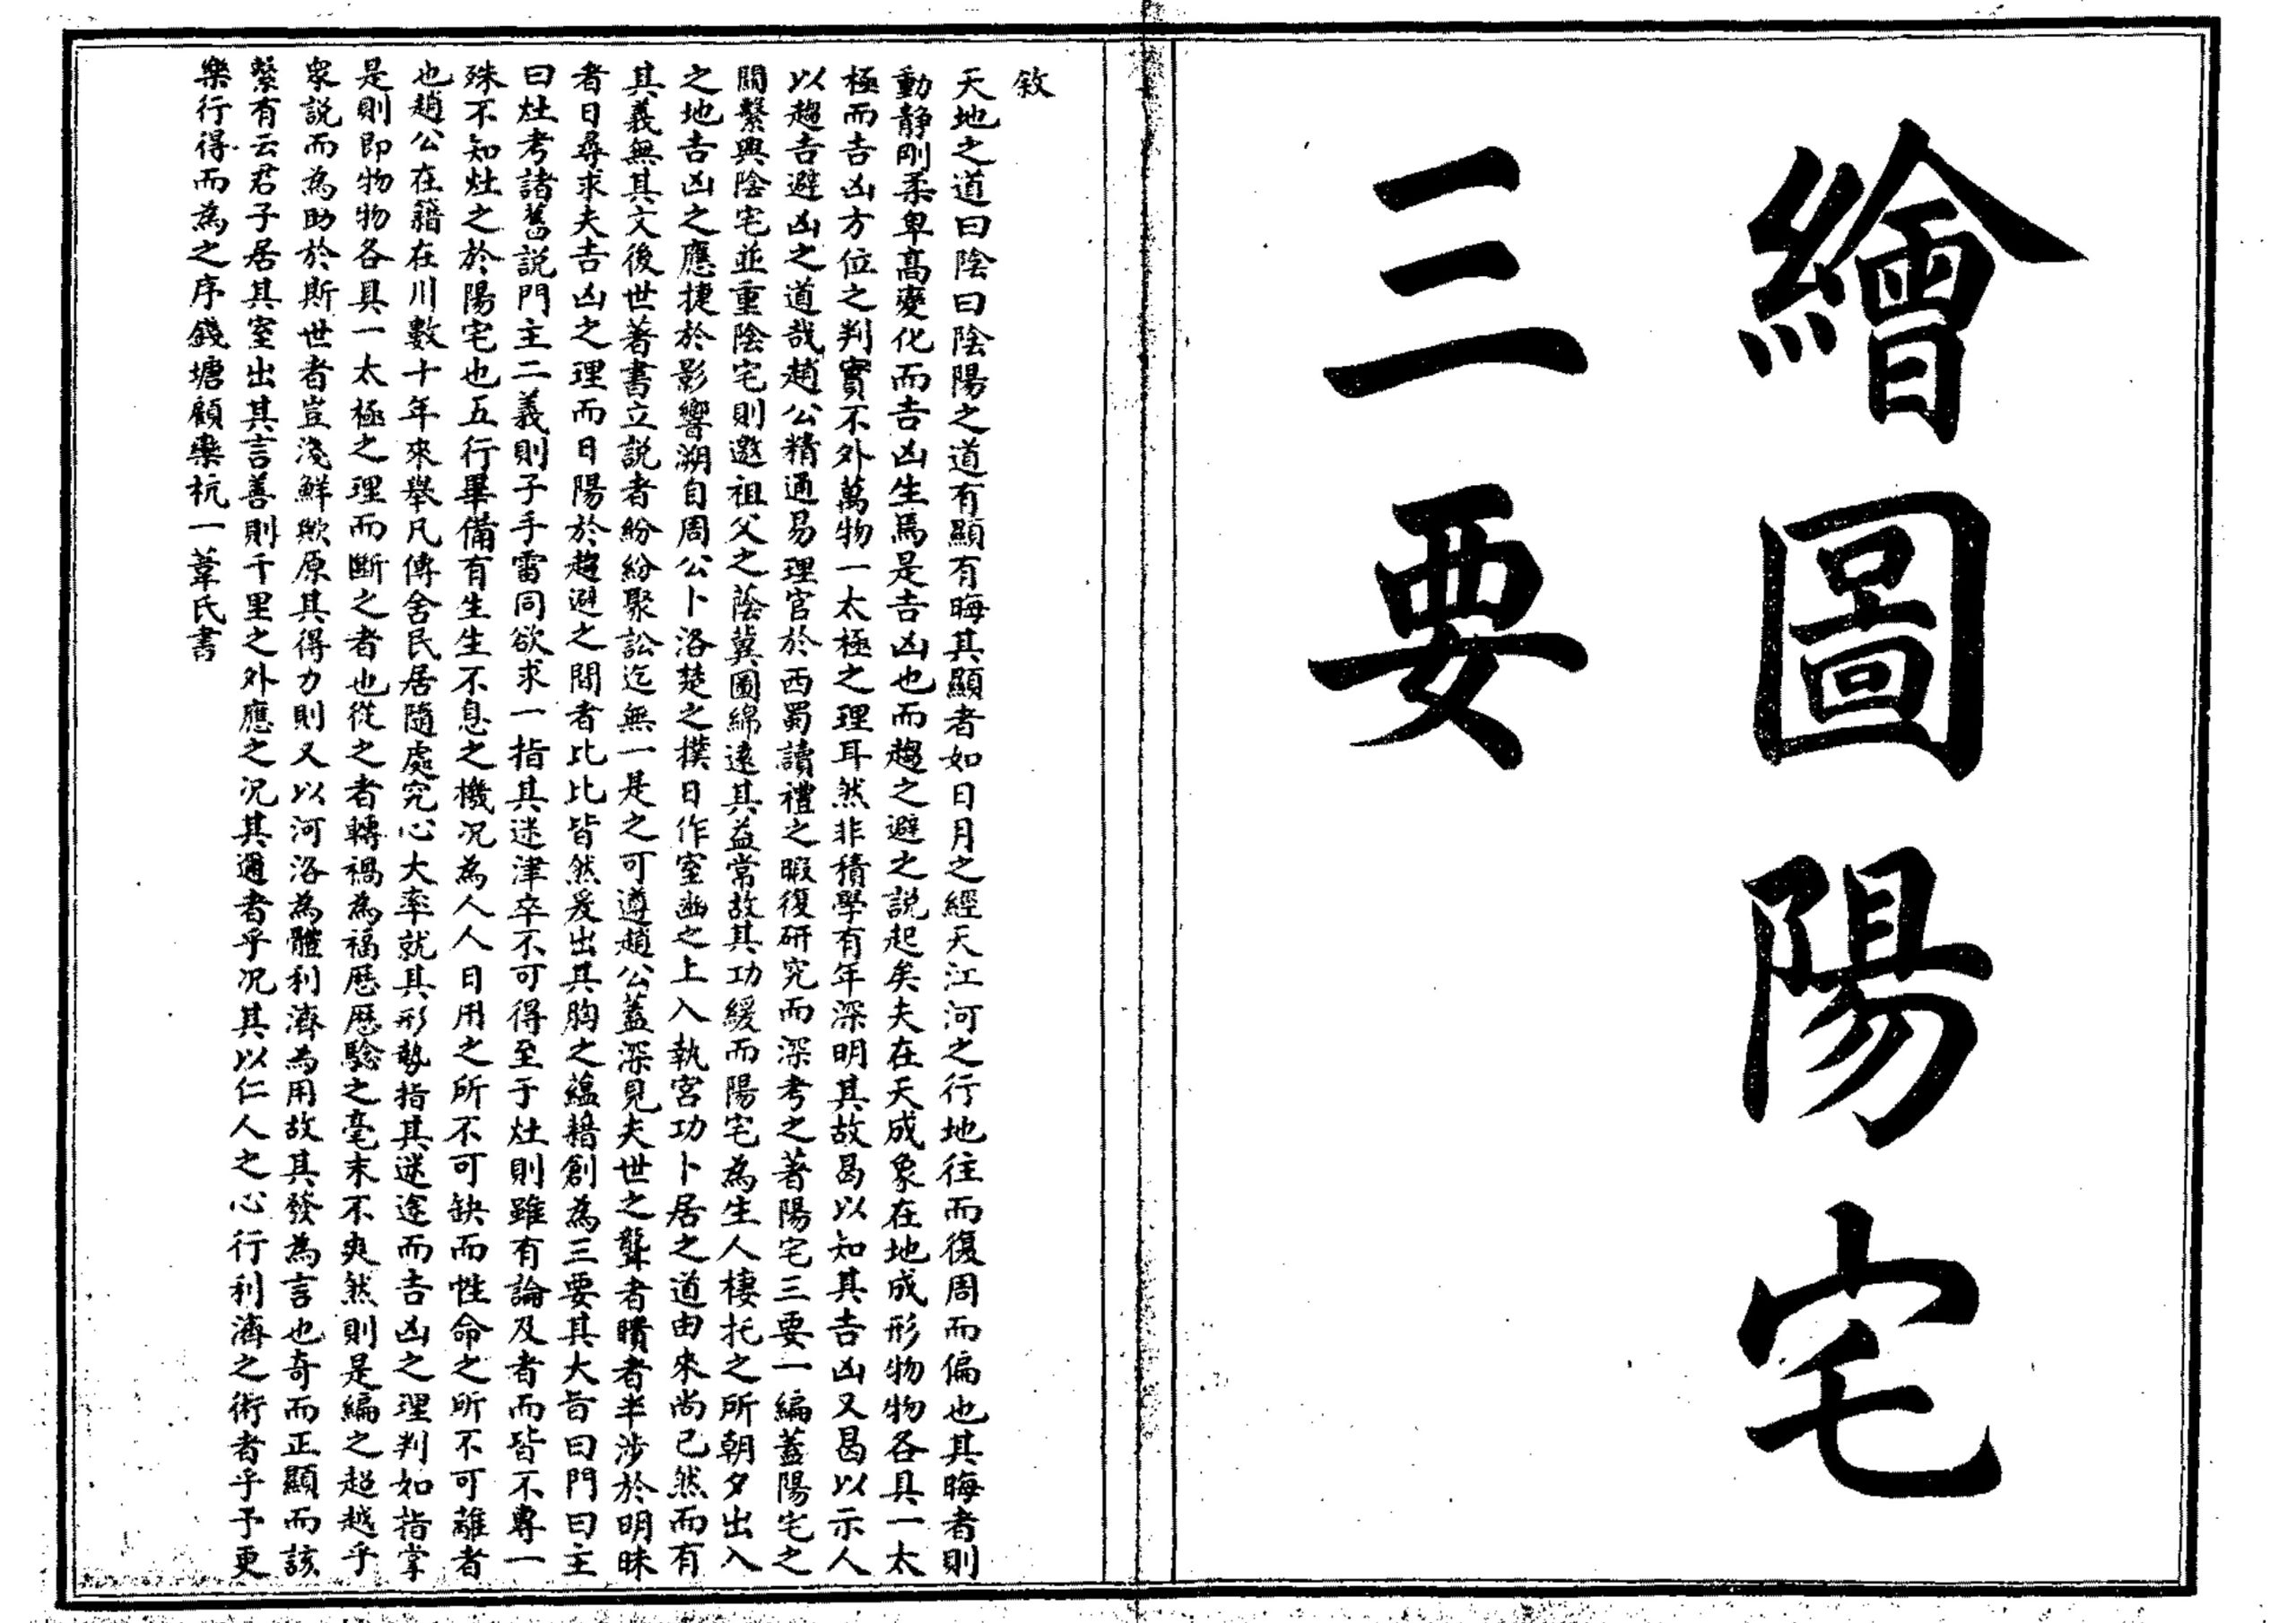 繪圖陽宅
三要
敘
天地之道曰陰曰陰陽之道有顯有晦其顯者如日月之經天江河之行地往而復周而偏也其晦者則
動靜剛柔卑高變化而吉凶生焉是吉凶也而趨之避之説起矣夫在天成象在地成形物物各具一太
極而吉凶方位之判實不外萬物一太極之理耳然非積學有年深明其故曷以知其吉凶又曷以示人
以趨吉避凶之道哉趙公精通易理官於西蜀讀禮之暇復研究而深考之著陽宅三要一編蓋陽宅之
關繫與陰宅並重陰宅則邀祖父之蔭冀圖綿遠其益常故其功緩而陽宅為生人棲托之所朝夕出入
之地吉凶之應捷於影響溯自周公卜洛楚之揆日作室豳之上入執宮功卜居之道由來尚已然而有
其義無其文後世著書立説者紛紛聚訟迄無一是之可遵趙公蓋深見夫世之聾者瞶者半涉於明昧
者日尋求夫吉凶之理而日陽於趨避之間者比比皆然爰出其胸之蘊藉創為三要其大旨曰門曰主
曰灶考諸舊説門主二義則子手雷同欲求一指其迷津卒不可得至于灶則雖有論及者而皆不專一
殊不知灶之於陽宅也五行畢備有生生不息之機况為人人日用之所不可缺而性命之所不可離者
也趙公在籍在川數十年來舉凡傳舍民居隨處究心大率就其形勢指其迷途而吉凶之理判如指掌
是則即物物各具一太極之理而斷之者也從之者轉禍為福歷歷驗之毫末不爽然則是編之超越乎
衆説而為助於斯世者豈淺鮮歟原其得力則又以河洛為體利濟為用故其發為言也奇而正顯而該
繫有云君子居其室出其言善則千里之外應之况其邇者乎况其以仁人之心行利濟之術者乎予更
樂行得而為之序錢塘顧樂杭一葦氏書